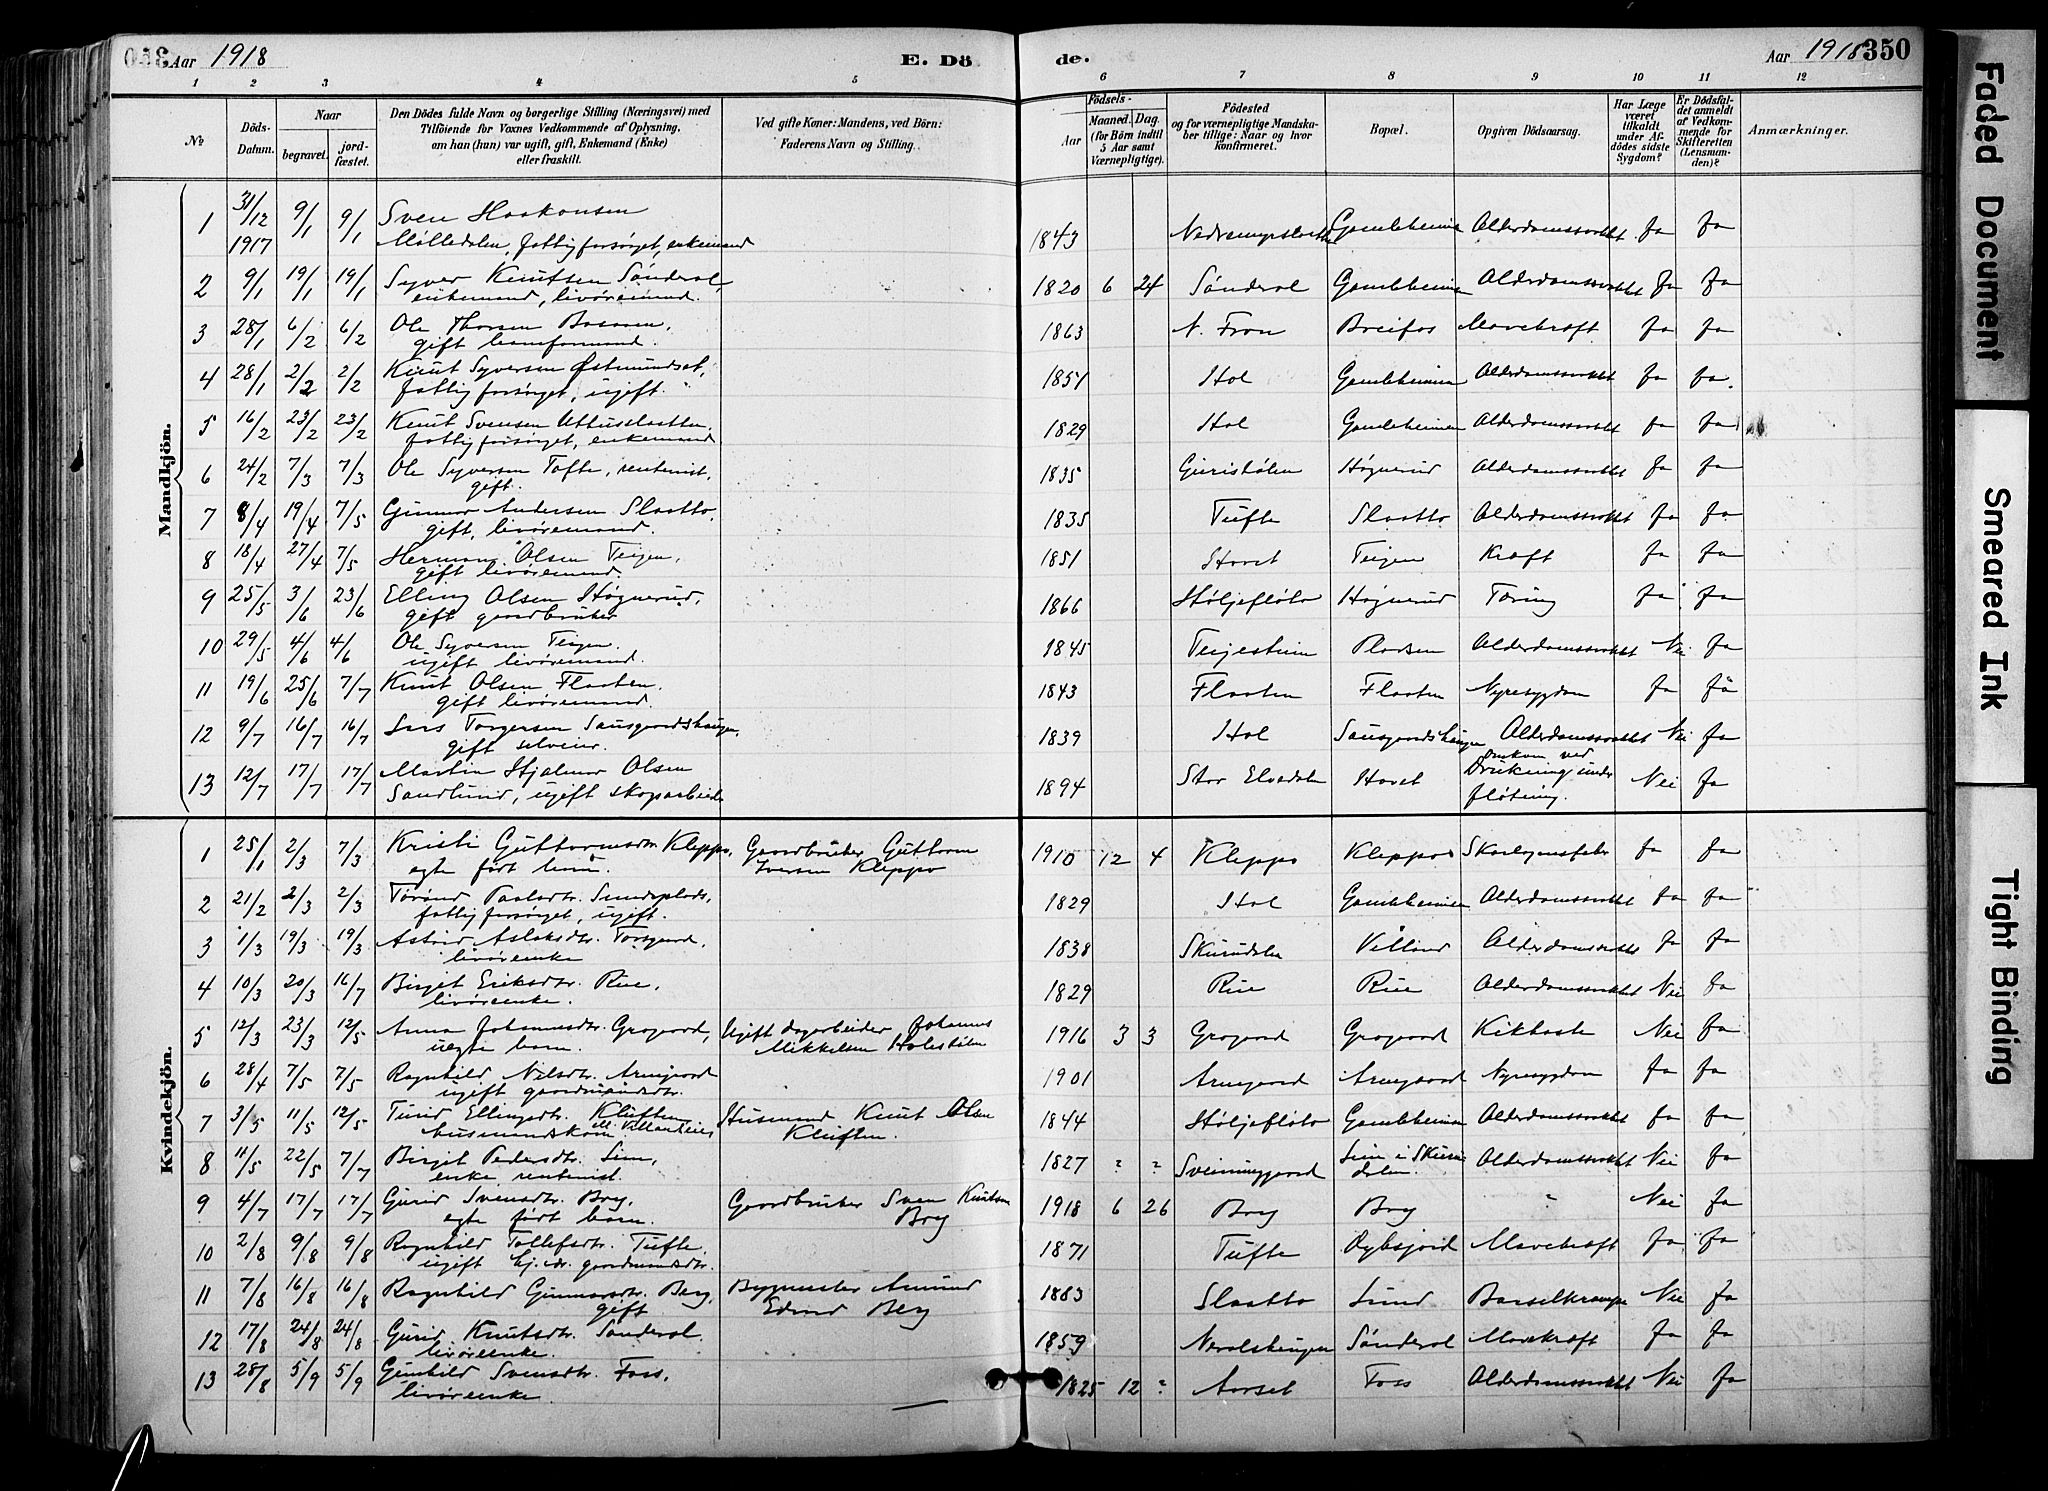 350 Aar 1918 E. Dö
de. Aar 1918 350
1 2 3 4 5 6 7 8 9 10 11 12
№ Döds-Datum. Naar begravet. jordfæstet. Den Dödes fulde Navn og borgerlige Stilling (Næringsvei) med Tilföiende for Voxnes Vedkommende af Oplysning, om han (hun) var ugift, gift, Enkemand (Enke) eller fraskilt. Ved gifte Koner: Mandens, ved Börn: Faderens Navn og Stilling.
Födsels- Aar Maaned. Dag. (for Börn indtil 5 Aar samt Værnepligtige). Födested og for værnepligtige Mandskaber tillige: Naar og hvor konfirmeret. Bopæl. Opgiven Dödsaarsag. Har Læge været tilkaldt under Afdödes sidste Sygdom? Er Dödsfaldet anmeldt af Vedkommende for Skifteretten (Lensmanden)? Anmærkninger.
Mandkjön.
1 31/12 1917 9/1 9/1 Sven Haakonsen Mølledalen, fattigforsørget, enkemand 1843 Gamleheimen Alderdomssvakhet ja ja
2 9/1 19/1 19/1 Syver Knutsen Sønderal, enkemand, livøremand. 1820 6 24 Sønderal Gamleheimen Alderdomssvakhet ja ja
3 28/1 6/2 6/2 Ole Thorsen gift 1863 N. Fron Breifos Mavekræft ja ja
4 28/1 2/2 2/2 Knut Syversen Østmundset, fattigforsørget, ugift. 1851 Hol Gamleheimen Alderdomssvakhet ja ja.
5 16/2 23/2 23/2 Knut Svensen Uthusslaatten, fattigforsørget, enkemand 1829 Hol Gamleheimen Alderdomssvakhet ja ja
6 24/2 7/3 7/3 Ole Syversen Tofte, rentenist, gift. 1835 Guristølen Høgnerud Alderdomssvakhet ja ja
7 8/4 19/4 7/5 Gunnar Andersen Slaatto, gift, livøremand. 1835 Tufte Slaatto Alderdomssvakhet ja ja
8 18/4 27/4 7/5 Herman Olsen Teigen, gift livøremand. 1851 Hovet Teigen Kræft ja ja
9 25/5 3/6 23/6 Elling Olsen Høgnerud, gift gaardbruker 1866 Høljefløto Høgnerud Tæring ja ja
10 29/5 4/6 4/6 Ole Syversen Teigen. ugift livøremand. 1845 Plassen Alderdomssvakhet Nei ja
11 19/6 25/6 7/7 Knut Olsen Flaaten. gift livøremand. 1843 Flaaten Flaaten Nyresygdom ja ja
12 9/7 16/7 16/7 Lars Torgersen Sausgaardshaugen, gift selveier. 1839 Hol Sausgaardshaugen Alderdomssvakhet Nei ja
13 12/7 17/7 17/7 Martin Hjalmar Olsen Sandlund, ugift skogarbeider 1894 Stor Elvedalen Hovet omkom ved Drukning under fløtning. Nei ja
Kvindekjön.
1 25/1 2/3 7/3 Kristi Guttormsdtr. Kleppo, egte født barn. Gaardbruker Guttorm Iversen Kleppo 1910 12 4 Kleppo Kleppo Skarlagensfeber ja ja
2 21/2 2/3 2/3 Torønd Paalsdtr. fattigforsørget, ugift. 1829 Hol Gamleheimen Alderdomssvakhet ja ja
3 1/3 19/3 19/3 Astrid Aslaksdtr. Torsgaard, livøreenke 1838 Skurudalen Villand Alderdomssvakhet ja ja
4 10/3 20/3 16/7 Birgit Eriksdtr. Rue, livøreenke. 1829 Rue Rue Alderdomssvakhet Nei ja
5 12/3 23/3 12/5 Anna Johannesdtr. Grogaard, uegte barn. Ugift dagarbeider Johannes Mikkelsen Holestølen 1916 3 3 Grogaard Grogaard Kikhoste Nei ja
6 28/4 7/5 7/5 Ragnhild Nilsdtr. Arnegaard ugift gaardmandsdtr. 1901 Arnegaard Arnegaard Nyresygdom ja ja
7 3/5 11/5 12/5 Turid Ellingsdtr. Kluften husmandskone Husmand Knut Olsen Kluften. 1844 Høljefløto Gamleheimen Alderdomssvakhet ja ja
8 11/5 22/5 7/7 Birgit Pedersdtr. Lien, enke, rentenist. 1827 ? ? Sveinunggaard Lien i Skurudalen. Alderdomssvakhet Nei ja
9 4/7 17/7 17/7 Gurid Svensdtr. Bry, egte født barn. Gaardbruker Sven Knutsen Bry 1918 6 26 Bry Bry ? Nei ja
10 2/8 9/8 9/8 Ragnhild Tollefsdtr. Tufte. ugift gaardmandsdtr. 1871 Tufte Mavekræft ja ja
11 7/8 16/8 16/8 Ragnhild Gunnarsdtr. Berg, gift Bygmester Amund Edvard Berg 1883 Slaatto Lund Barselkrampe Nei ja
12 17/8 24/8 24/8 Gurid Knutsdtr. Sønderal. livøreenke. 1859 Neralshaugen Sønderal Mavekræft ja ja
13 28/8 5/9 5/9 Gunhild Svensdtr. Foss, livøreenke. 1825 12 ? Aarset Foss Alderdomssvakhet Nei ja
Faded Document
Smeared Ink
Tight Binding